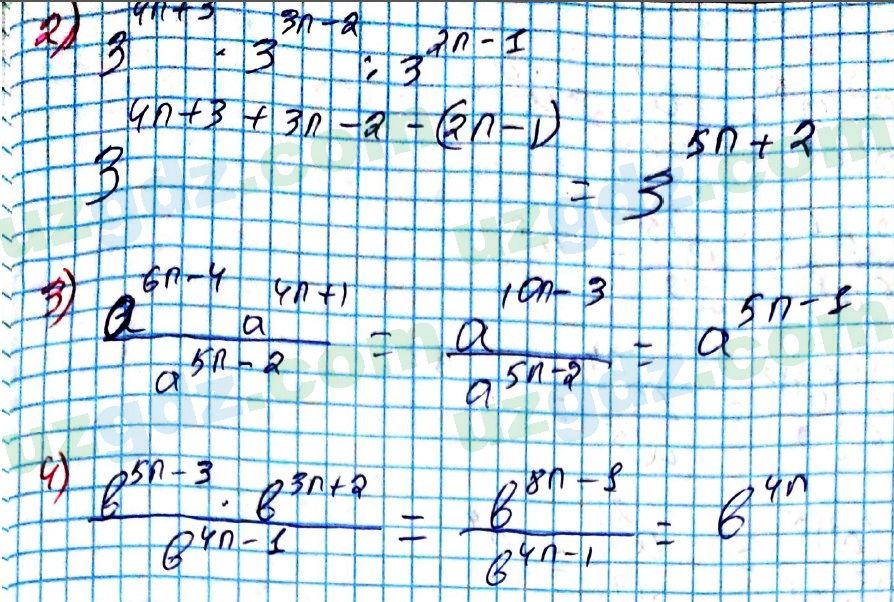 2) 3^{4n+3} · 3^{3n-2} : 3^{2n-1}
3^{4n+3+3n-2-(2n-1)} = 3^{5n+2}
3) \frac{a^{6n-4} a^{4n+1}}{a^{5n-2}} = \frac{a^{10n-3}}{a^{5n-2}} = a^{5n-1}
4) \frac{b^{5n-3} · b^{3n+2}}{b^{4n-1}} = \frac{b^{8n-1}}{b^{4n-1}} = b^{4n}
uzgdz.com
uzgdz.com
uzgdz.com
uzgdz.com